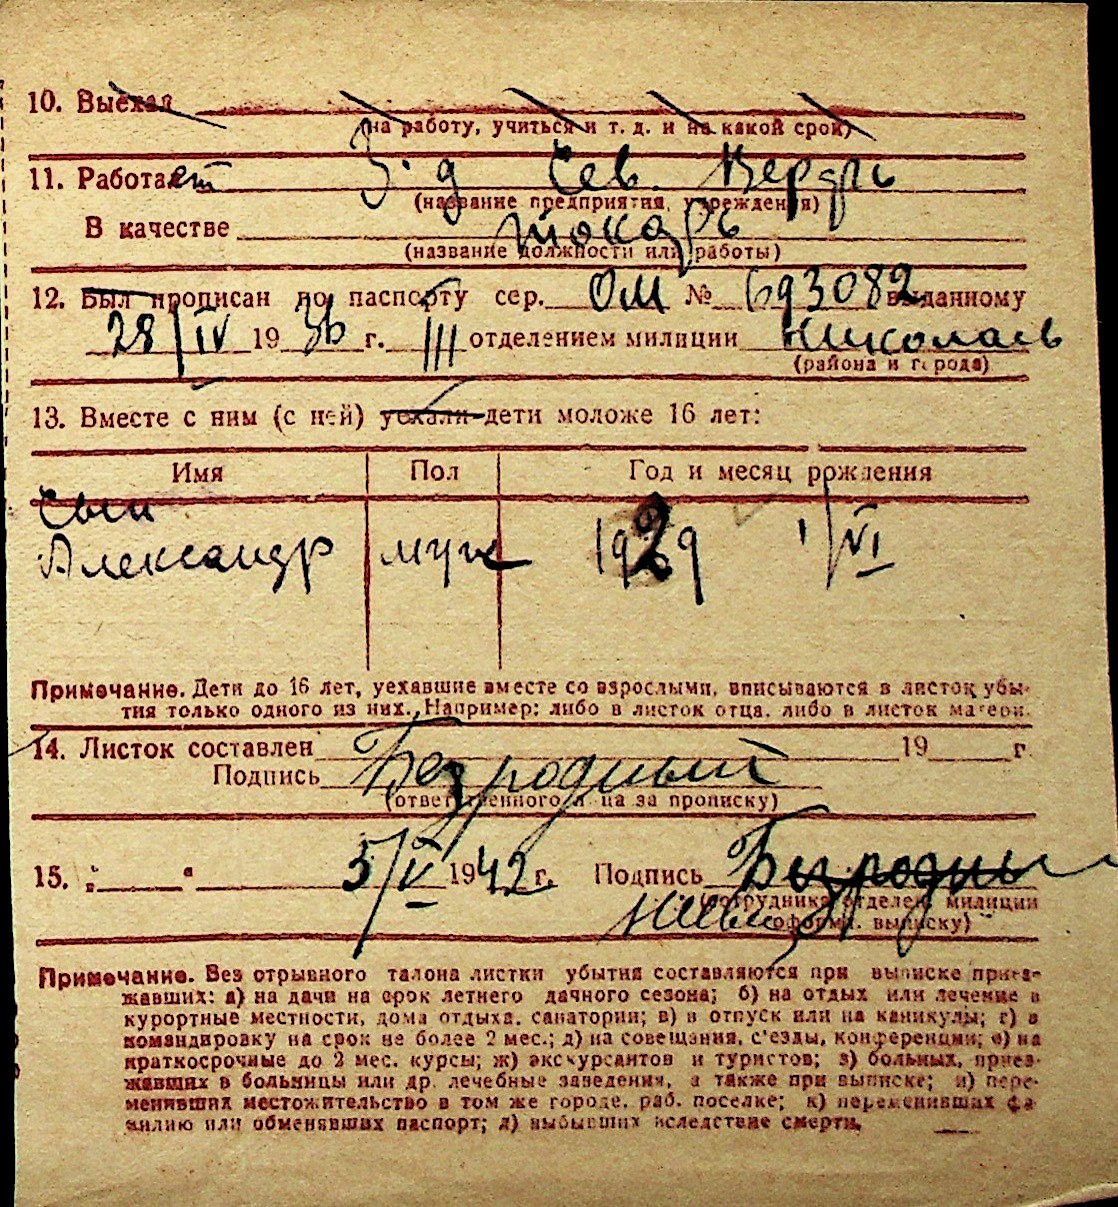 10. Выехал
(на работу, учиться и т. д. и на какой срок)
11. Работает З-д Сев. Верфь
(название предприятия, учреждения)
В качестве токарь
(название должности или работы)
12. Был прописан по паспорту сер. ОМ № 693082 выданному
28/IV 1936 г. III отделением милиции Николаев
(района и города)
13. Вместе с ним (с ней) уехали дети моложе 16 лет:
Имя Пол Год и месяц рождения
Сын
Александр муж 1929 1/VI
Примечание. Дети до 16 лет, уехавшие вместе со взрослыми, вписываются в листок убы-
тия только одного из них. Например: либо в листок отца, либо в листок матери.
14. Листок составлен 19 г.
Подпись Безродный
(ответственного лица за прописку)
15. „ “ 5/V 1942 г. Подпись Безродны
(сотрудника отделен. милиции
оформ. выписку)
Примечание. Без отрывного талона листки убытия составляются при выписке приез-
жавших: а) на дачи на срок летнего дачного сезона; б) на отдых или лечение в
курортные местности, дома отдыха, санатории; в) в отпуск или на каникулы; г) в
командировку на срок не более 2 мес.; д) на совещания, с'езды, конференции; е) на
краткосрочные до 2 мес. курсы; ж) экскурсантов и туристов; з) больных, приез-
жавших в больницы или др. лечебные заведения, а также при выписке; и) пере-
менивших местожительство в том же городе, раб. поселке; к) переменивших фа-
милию или обменявших паспорт; л) выбывших вследствие смерти.